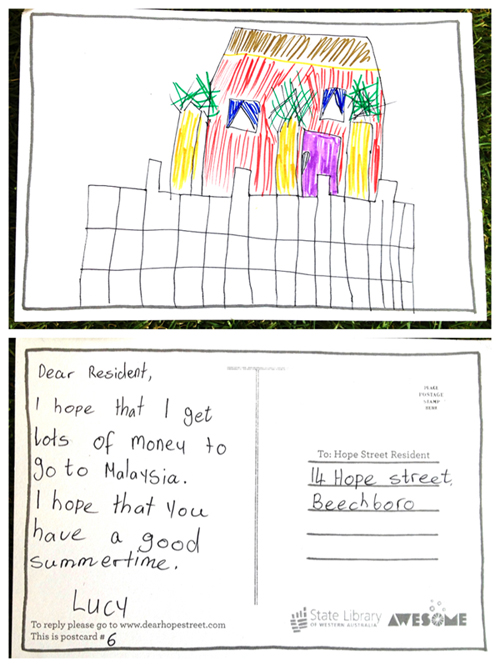 Dear Resident,
I hope that I get
lots of money to
go to Malaysia.
I hope that you
have a good
summertime.
LUCY
To reply please go to www.dearhopestreet.com
This is postcard # 6
PLACE
POSTAGE
STAMP
HERE
To: Hope Street Resident
14 Hope street,
Beechboro
State Library
OF WESTERN AUSTRALIA
AWESOME